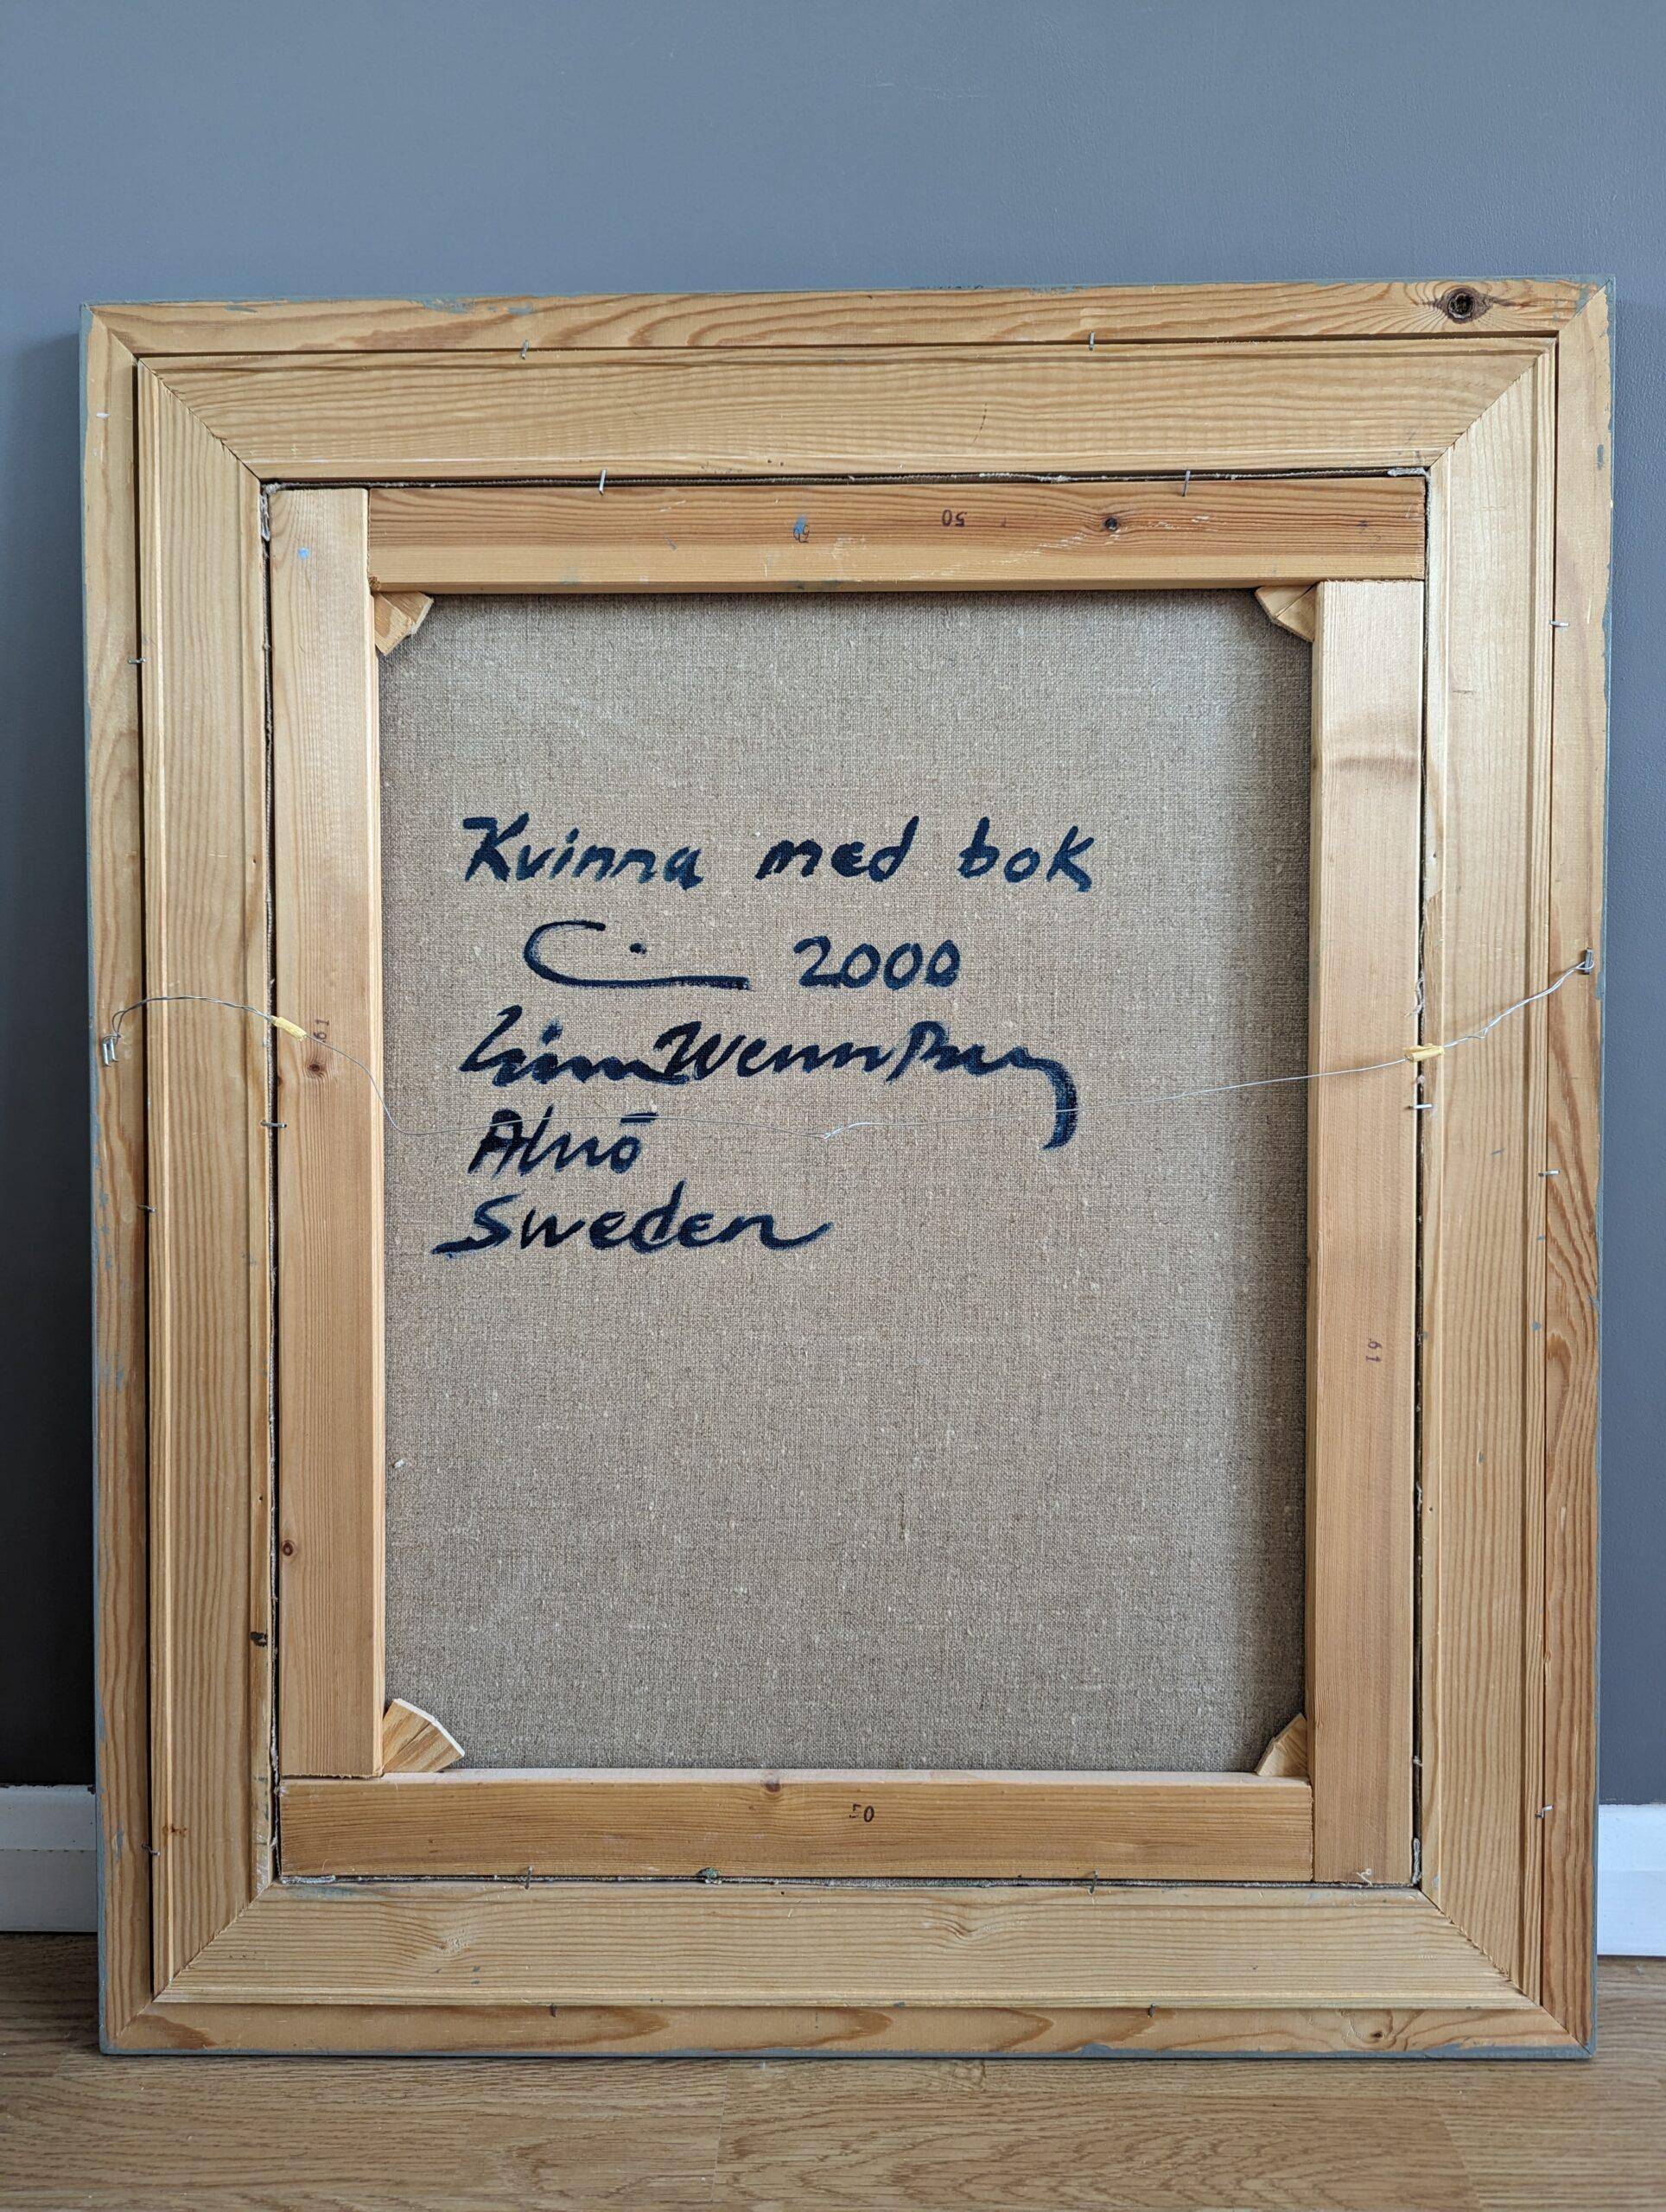 50
61
Kvinna med bok
2000
Alnö
Sweden
61
50